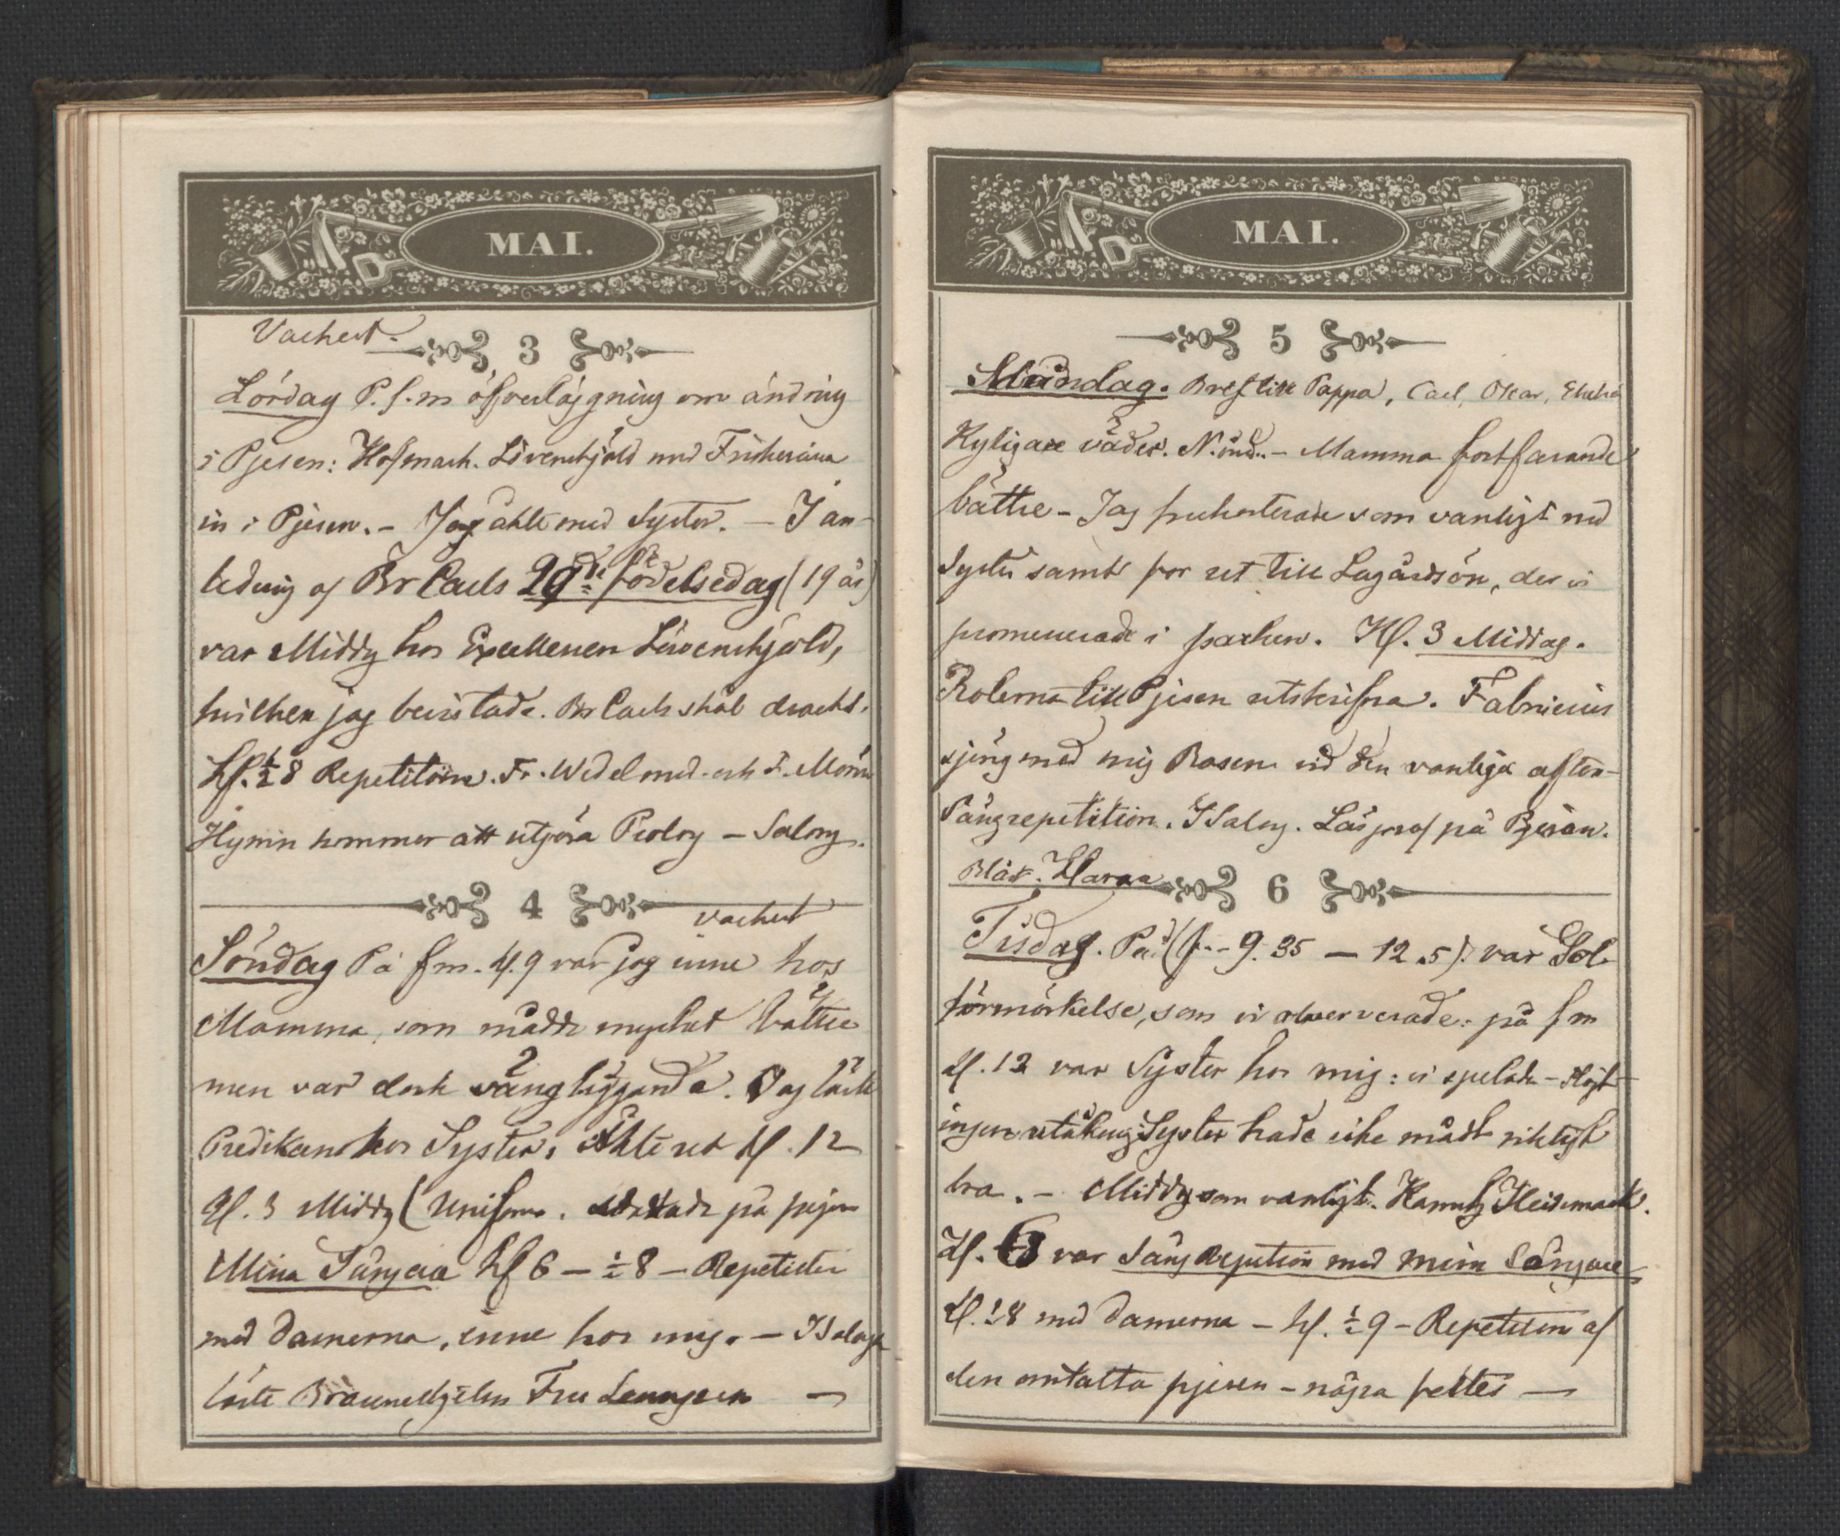 MAI.
Vackert.
3
Lördag P. f. m öfverläggning om ändring
i Pjesen: Hofmarsk. Lövenskjöld med
in i Pjesen. – Jag åkte med Syster. – I an-
ledning af Br Carls 20de födelsedag (19 år)
var Middg hos Excellensen Lövenskjold,
hvilken jag bevistade. Br Carls skål dracks.
Kl. ½ 8 Repetition. Fr. Wedel med och F. Mörner
Hymn kommer att utgöra Prolog – Salong.
4
vackert
Söndag På fm. kl. 9 var jag inne hos
Mamma, som mådde mycket bättre
men var dock sängliggande. Jag läste
Predikan hos Syster. Åkte ut kl. 12
Kl. 3 Middg (Uniform. på pjesen
Mina Sångare kl 6 – ½ 8 – Repetition
med Damerna, inne hos mig. – I Salong
läste Fru Lenngren —
MAI.
5
Måndag. Bref till Pappa, Carl, Oscar,
Kyligare väder. N. vind. – Mamma fortfarande
bättre – Jag frukosterade som vanligt med
Syster samt for ut till Lagårdsön, der vi
promenerade i parken. Kl. 3 Middag.
Rolerna till Pjesen utskrifna. Fabricius
sjöng med mig Basen vid den vanliga afton-
Sångrepetition. I Salog. Läsprof på Pjesen.
Blåst. Klara
6
Tisdag. På (f.- 9. 35 – 12. 5). var Sol-
förmörkelse, som vi observerade: på fm
kl. 12 var Syster hos mig: vi spelade –
ingen utåkning Syster hade icke mådt riktigt
bra. – Middg som vanligt.
Kl. 6 var Sång Repetition med mina Sångare
kl. ½8 med Damerna – kl. ½ 9 – Repetition af
den omtalta pjesen – några feltes —